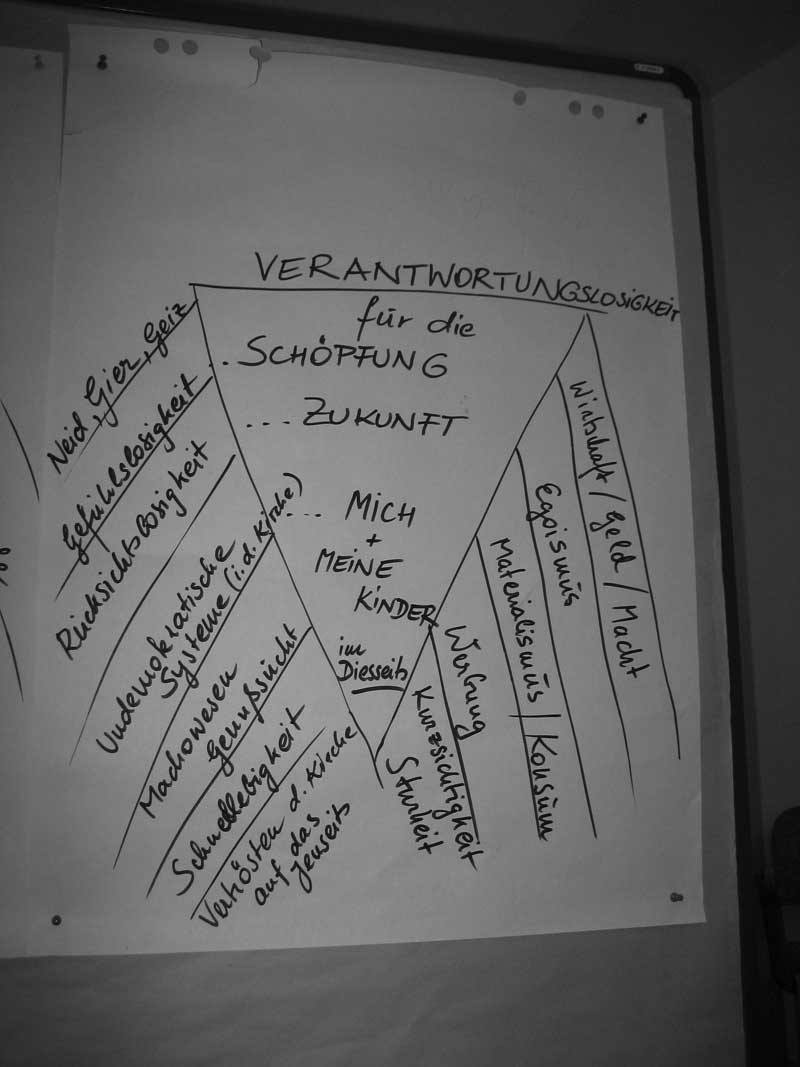 VERANTWORTUNGSLOSIGKEIT
für die
... SCHÖPFUNG
... ZUKUNFT
... MICH
+
MEINE
KINDER
im
Diesseits
Neid, Gier, Geiz
Gefühlslosigkeit
Rücksichtslosigkeit
Undemokratische
Systeme (i.d. Kirche)
Machowesen
Genußsucht
Schnellebigkeit
Vertrösten d. Kirche
auf das
Jenseits
Wirtschaft / Geld / Macht
Egoismus
Materialismus / Konsum
Werbung
Kurzsichtigkeit
Sturheit